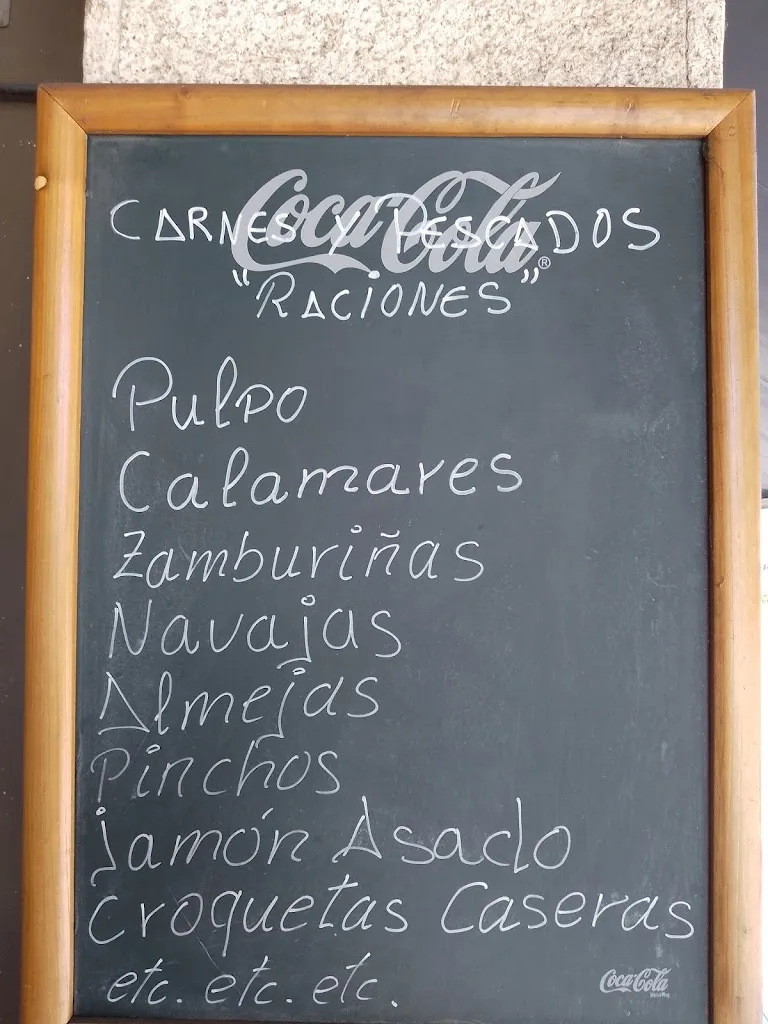 Coca-Cola®
CARNES Y PESCADOS
"RACIONES"
Pulpo
Calamares
Zamburiñas
Navajas
Almejas
Pinchos
jamón Asado
Croquetas Caseras
etc. etc. etc.
Coca-Cola